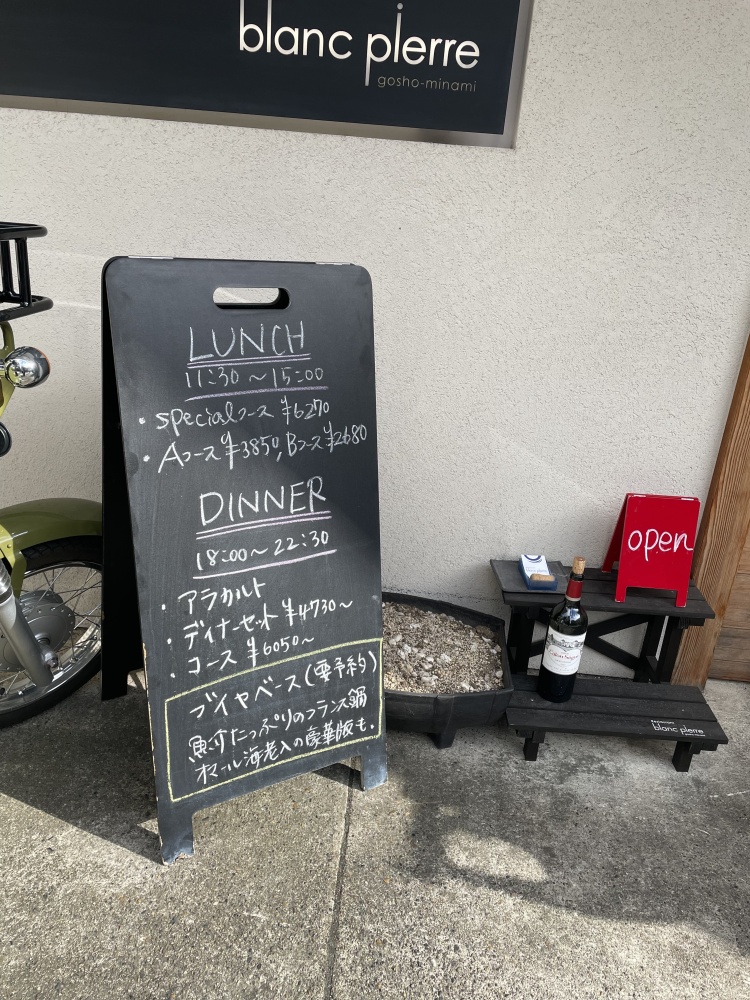 blanc pierre
gosho-minami
LUNCH
11:30 〜 15:00
・specialコース ¥6270
・Aコース ¥3850, Bコース ¥2680
DINNER
18:00〜22:30
・アラカルト
・ディナーセット ¥4730〜
・コース ¥6050〜
ブイヤベース(要予約)
魚介たっぷりのフランス鍋
オマール海老入の豪華版も.
open
Calon Ségur
blanc pierre